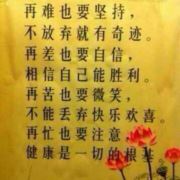 再难也要坚持，
不放弃就有奇迹。
再差也要自信，
相信自己能胜利。
再苦也要微笑，
不能丢弃快乐欢喜。
再忙也要注意，
健康是一切的根基。